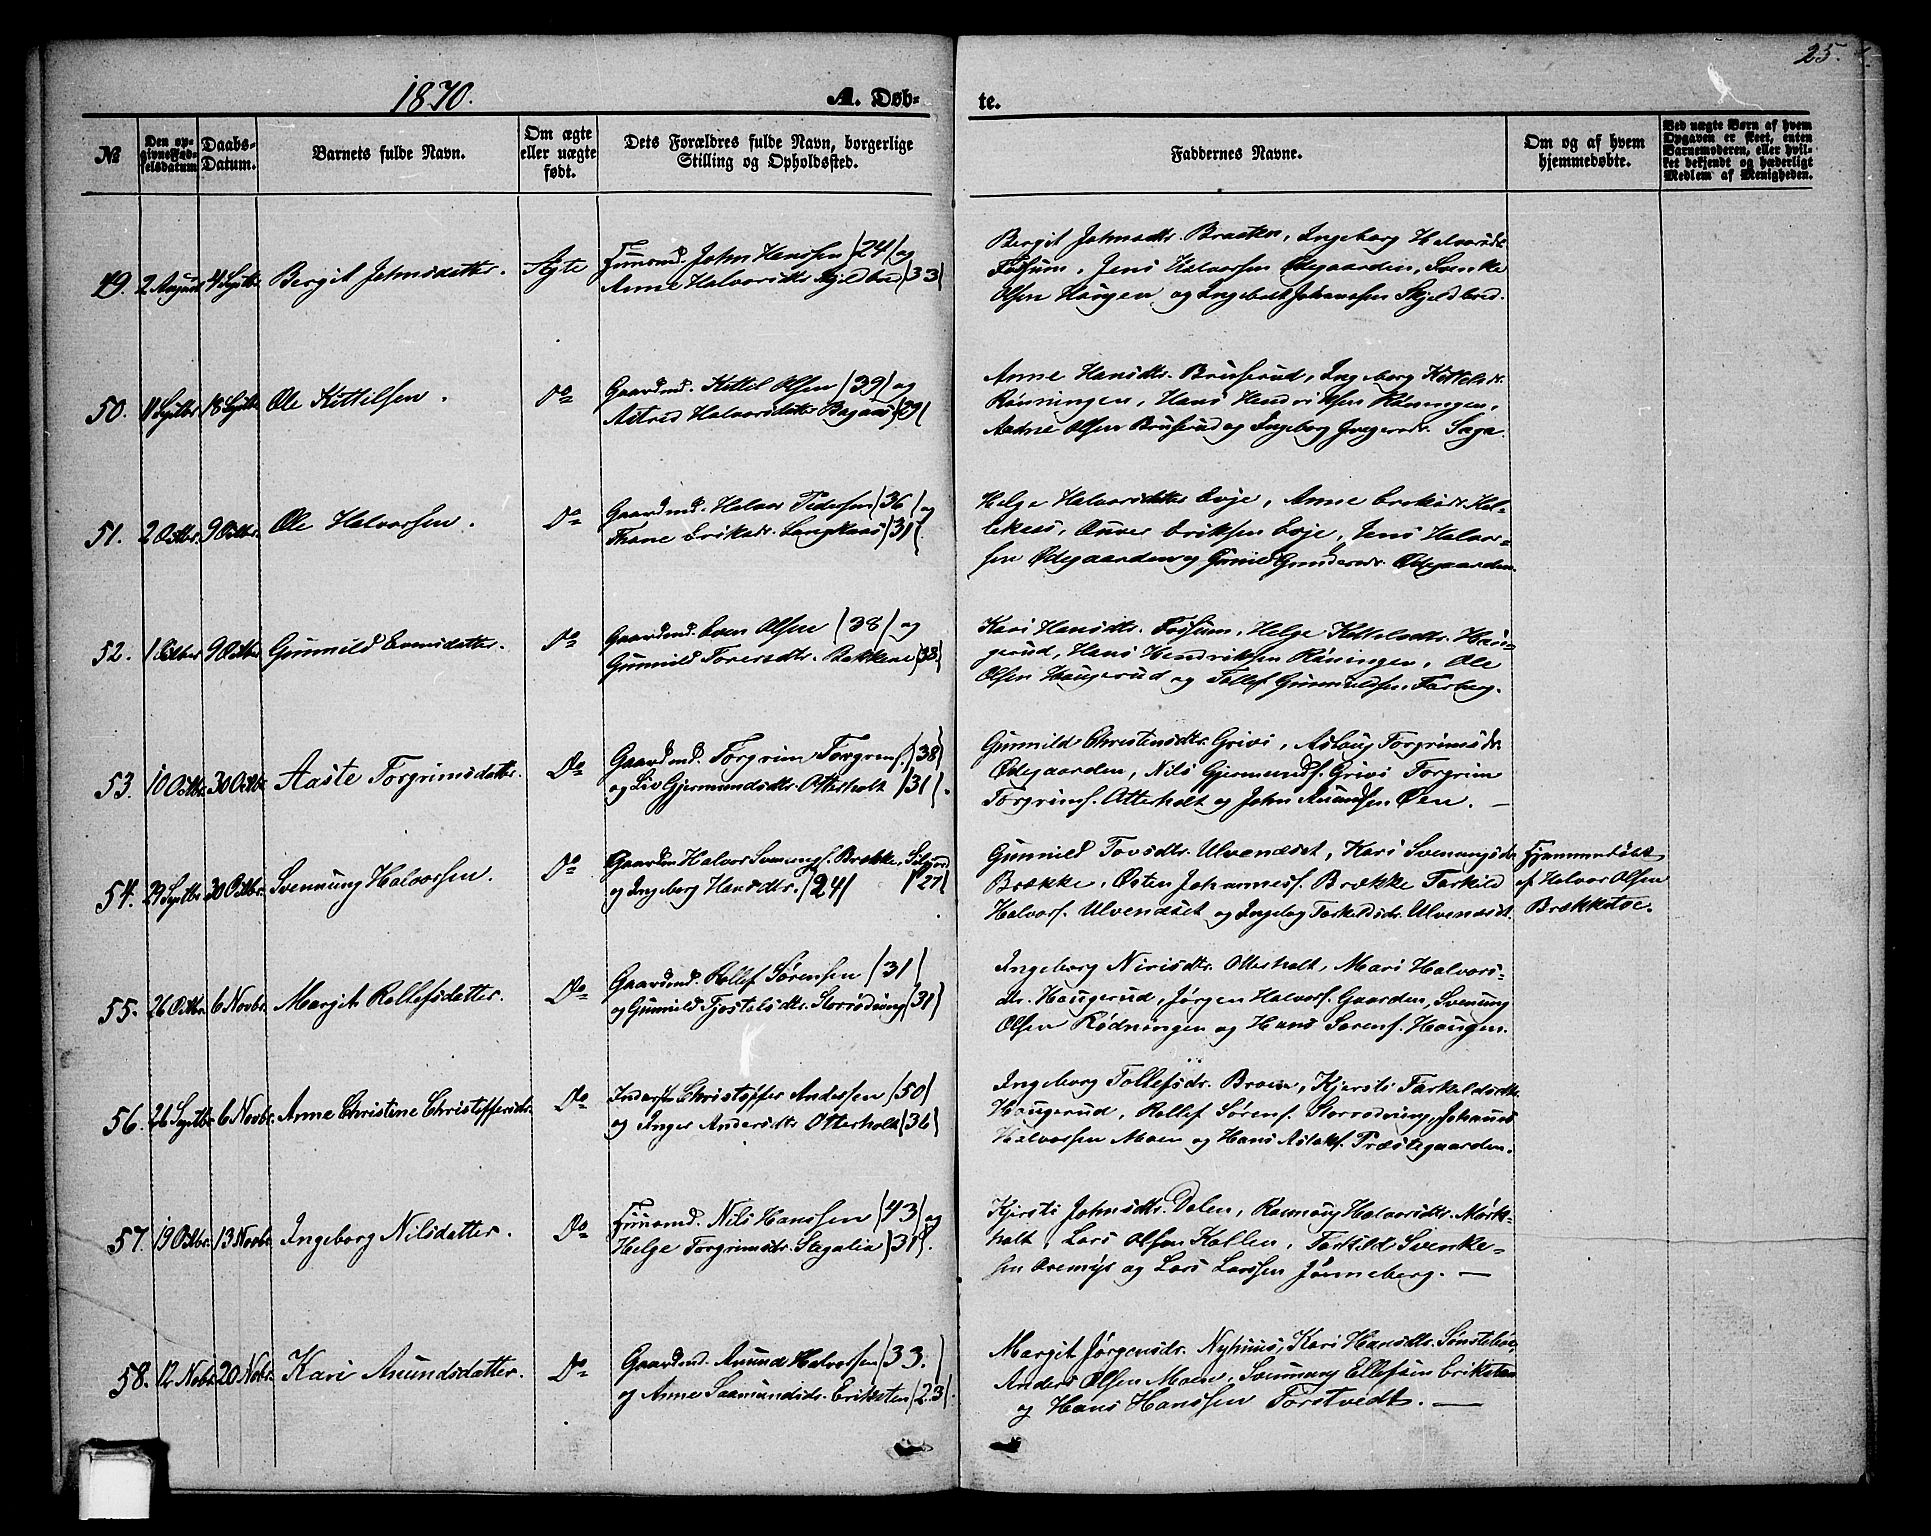 25.
1870.
A. Døb-
te.
№
Den op-
givne Fød-
selsdatum
Daabs-
Datum.
Barnets fulde Navn.
Om ægte
eller uægte
født.
Dets Forældres fulde Navn, borgerlige
Stilling og Opholdssted.
Faddernes Navne.
Om og af hvem
hjemmedøbte.
Ved uægte Børn af hvem
Opgaven er skeet, enten
Barnemoderen, eller hvil-
ket bekjendt og hæderligt
Medlem af Menigheden.
49. 2 August 4 Septbr. Bergit Johnsdatter. Ægte
Huusmd. John Hanssen (24) og
Anne Halvorsdtr. Skjeldbred (33)
Bergit Johnsdtr. Braaten, Ingeborg Halvorsdtr.
Fossum, Jens Halvorsen Ødegaarden, Svenke
Olsen Haugen og Ingebret Johanssen Skjeldbred.
50. 11 Septbr. 18 Septbr. Ole Kittilsen. Do
Gaardmd. Kittil Olsen (39) og
Astred Halvorsdatter Bagaas (29)
Anne Hansdtr. Bruserud, Ingeborg Kittelsdr.
Rønningen, Hans Hendriksen Røningen,
Aadne Olsen Bruserud og Ingeborg Saga.
51. 2 Octbr. 9 Octbr. Ole Halvorsen. Do
Gaardmd. Halvor Pedersen (36) og
Thone Eriksdr. Langkaas (31).
Helge Halvorsdatter Evje, Anne Eriksdr. Hel-
lekaas, Anver Eriksen Evje, Jens Halvor-
sen Ødegaarden og Gunild Gundersdr. Ødegaarden.
52. 1 Octber 9 Octber Gunnild Evensdatter. Do
Gaardmd. Even Olsen (38) og
Gunnild Toresdtr. Bakkene (38)
Kari Hansdtr. Fossum, Helge Kittelsdtr. Hau-
gerud, Hans Hendriksen Røningen, Ole
Olsen Haugerud og Tollef Gunnuldsen Farberg.
53. 10 Octbr. 30 Octbr. Aaste Torgrimsdatter. Do
Gaardmd. Torgrim Torgrims. (38)
og Liv Gjermundsdtr. Otterholt (31).
Gunnild Christensdtr. Grivi, Aslaug Torgrimsdr.
Ødegaarden, Nils Gjermunds. Grivi Torgrim
Torgrims. Otterholt og John Amundsen Øen. —
54. 29 Septbr. 30 Octbr. Svennung Halvorsen. Do
Gaardm. Halvor Svenungs. Brække, Siljord
og Ingeborg Hansdtr. (24) (27)
Gunnild Tovsdtr. Ulvenæset, Kari Svenungsdr.
Brække, Østen Johannes. Brække Tarkild
Halvors. Ulvenæset og Ingebog Tarkildsdr. Ulvenæset.
Hjemmedøbt
af Halvor Olsen
Brækketoe.
55. 26 Octbr. 6 Novbr. Margit Rollefsdatter. Do
Gaardmd. Rollef Sørensen (31)
og Gunnild Tjostelsdtr. Storrødning (31)
Ingeborg Nirisdtr. Otterholt, Mari Halvors-
dr. Haugerud, Jørgen Halvors. Gaarden, Svenung
Olsen Rødningen og Hans Sørens. Haugen.
56. 26 Septbr. 6 Novbr. Anne Christine Christoffersdr. Do
Inderst Christoffer Andersen (50)
og Inger Andersdtr. Otterholt (36)
Ingeborg Tollefsdr. Broen, Kjersti Tarkildsdtr.
Haugerud, Rollef Sørens. Storrødning, Johannes
Halvorsen Moen og Hans Aslaks. Præstegaarden.
57. 19 Octbr. 13 Novbr. Ingeborg Nilsdatter. Do
Huusmd. Nils Hanssen (43) og
Helge Torgrimsdr. Stegalia (31).
Kjersti Johnsdtr. Dalen, Rannaug Halvorsdtr. Mørk-
holt, Lars Olsen Kallen, Tarkild Svenke-
sen Oremyr og Lars Larssen Jønneberg. —
58. 12 Novbr. 20 Novbr. Kari Amundsdatter. Do
Gaardmd. Amund Halvorsen (33.)
og Anne Saamundsdr. Eriksten (23).
Margit Jørgensdr. Nyhuus, Kari Hansdtr. Sønstebøe,
Anders Olsen Moen, Svennung Ellefsen Eriksten
og Hans Hanssen Torstvedt. —